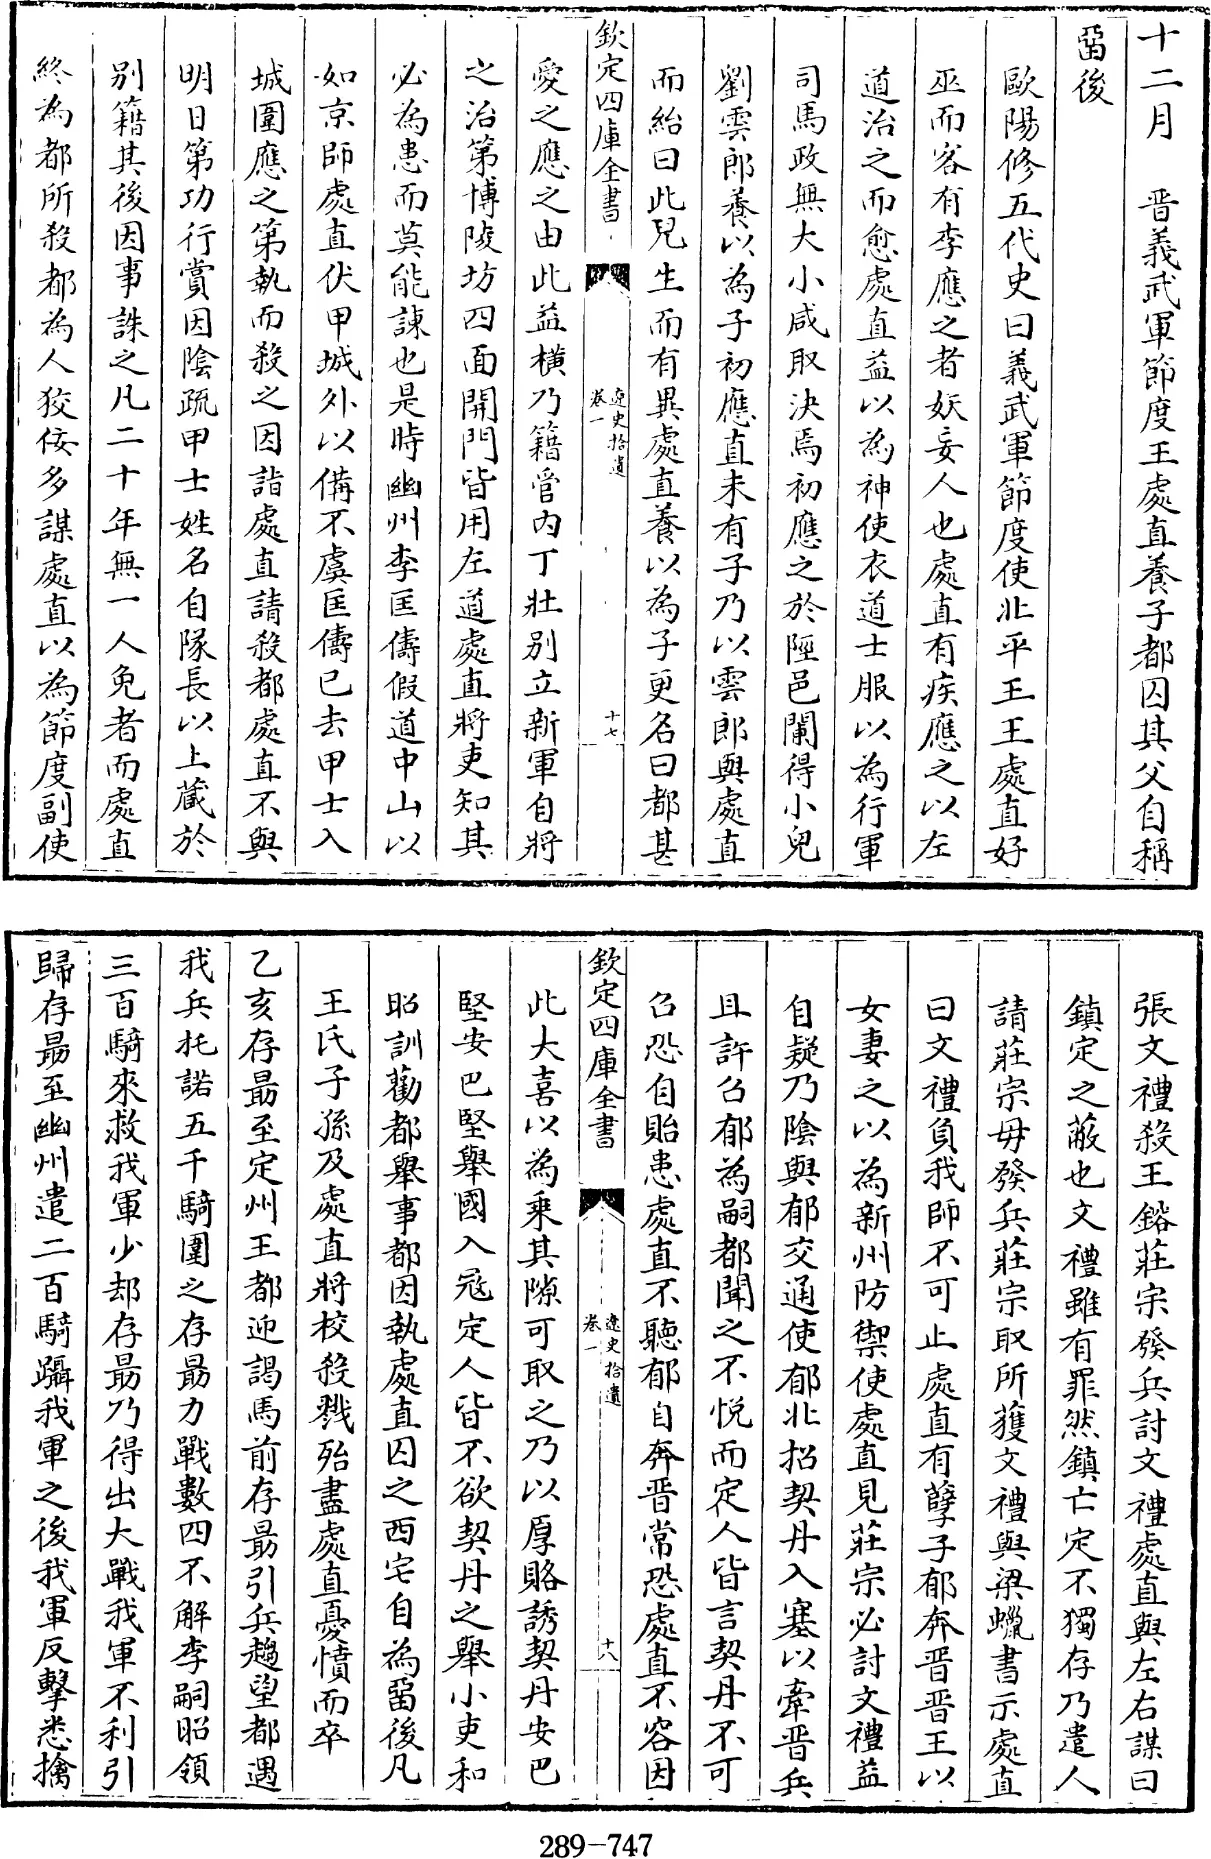 十二月　晋義武軍節度王處直養子都囚其父自稱
畱後
歐陽修五代史曰義武軍節度使北平王王處直好
巫而客有李應之者妖妄人也處直有疾應之以左
道治之而愈處直益以為神使衣道士服以為行軍
司馬政無大小咸取決焉初應之於陘邑闌得小兒
劉雲郎養以為子初應直未有子乃以雲郎與處直
而紿曰此兒生而有異處直養以為子更名曰都甚
欽定四庫全書
遼史拾遺
卷一
十七
愛之應之由此益橫乃籍管內丁壯別立新軍自將
之治第博陵坊四面開門皆用左道處直將吏知其
必為患而莫能諫也是時幽州李匡儔假道中山以
如京師處直伏甲城外以備不虞匡儔已去甲士入
城圍應之第執而殺之因詣處直請殺都處直不與
明日第功行賞因陰疏甲士姓名自隊長以上藏於
別籍其後因事誅之凡二十年無一人免者而處直
終為都所殺都為人狡佞多謀處直以為節度副使
張文禮殺王鎔莊宗發兵討文禮處直與左右謀曰
鎮定之蔽也文禮雖有罪然鎮亡定不獨存乃遣人
請莊宗毋發兵莊宗取所獲文禮與梁蠟書示處直
曰文禮負我師不可止處直有孽子郁奔晋晋王以
女妻之以為新州防禦使處直見莊宗必討文禮益
自疑乃陰與郁交通使郁北招契丹入塞以牽晋兵
且許召郁為嗣都聞之不悅而定人皆言契丹不可
召恐自貽患處直不聽郁自奔晋常恐處直不容因
欽定四庫全書
遼史拾遺
卷一
十八
此大喜以為乘其隙可取之乃以厚賂誘契丹安巴
堅安巴堅舉國入寇定人皆不欲契丹之舉小吏和
昭訓勸都舉事都因執處直囚之西宅自為畱後凡
王氏子孫及處直將校殺戮殆盡處直憂憤而卒
乙亥存勗至定州王都迎謁馬前存勗引兵趨望都遇
我兵托諾五千騎圍之存勗力戰數四不解李嗣昭領
三百騎來救我軍少却存勗乃得出大戰我軍不利引
歸存勗至幽州遣二百騎躡我軍之後我軍反擊悉擒
289-747